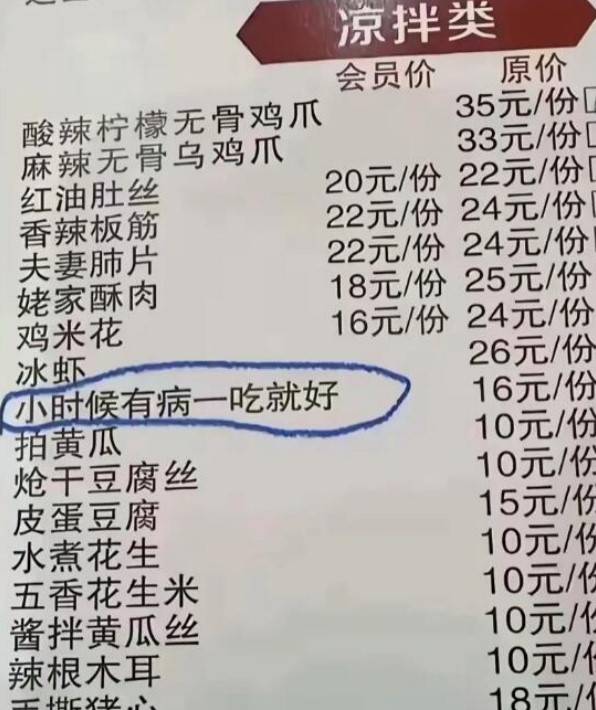 凉拌类
会员价 原价
酸辣柠檬无骨鸡爪 35元/份
麻辣无骨乌鸡爪 33元/份
红油肚丝 20元/份 22元/份
香辣板筋 22元/份 24元/份
夫妻肺片 22元/份 24元/份
姥家酥肉 18元/份 25元/份
鸡米花 16元/份 24元/份
冰虾 26元/份
小时候有病一吃就好 16元/份
拍黄瓜 10元/份
炝干豆腐丝 10元/份
皮蛋豆腐 15元/份
水煮花生 10元/份
五香花生米 10元/份
酱拌黄瓜丝 10元/份
辣根木耳 10元/份
手撕猪心 18元/份